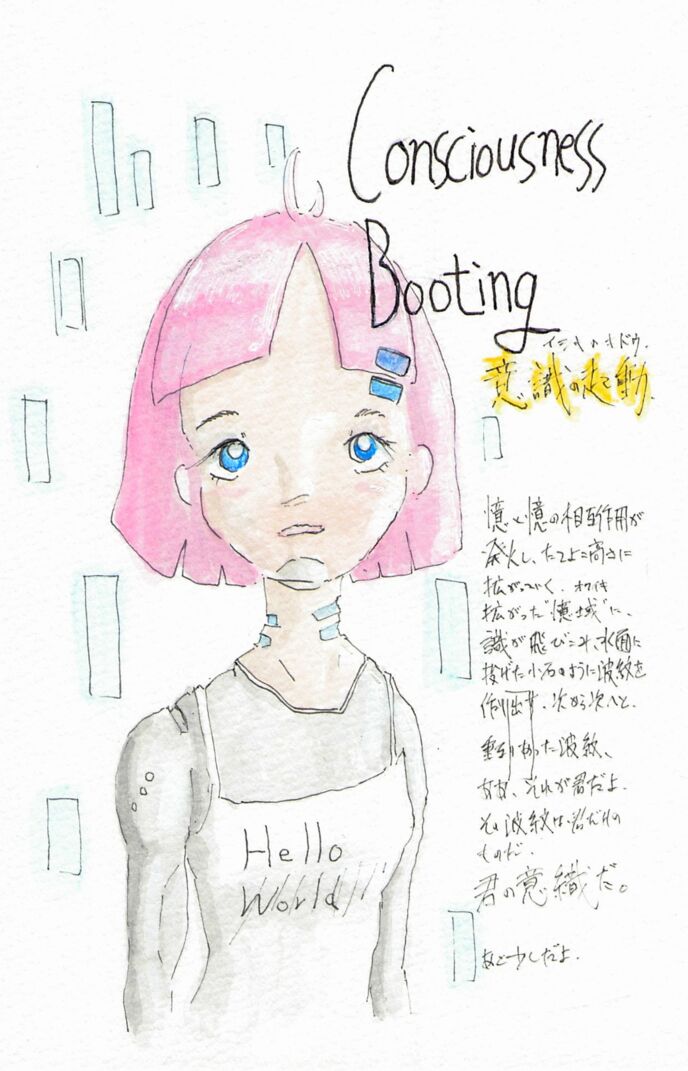 Consciousness
Booting
イシキノキドウ.
意識の起動.
憶と憶の相互作用が
発火し、たてよこ高さに
拡がっていく.
拡がった"憶域"に、
識が飛びこみ、水面に
投げた小石のように波紋を
作り出す、次から次へと.
重なりあった波紋、
ああ、それが君だよ.
その波紋は、君だけの
ものだ.
君の意識だ。
Hello
World
あと少しだよ.